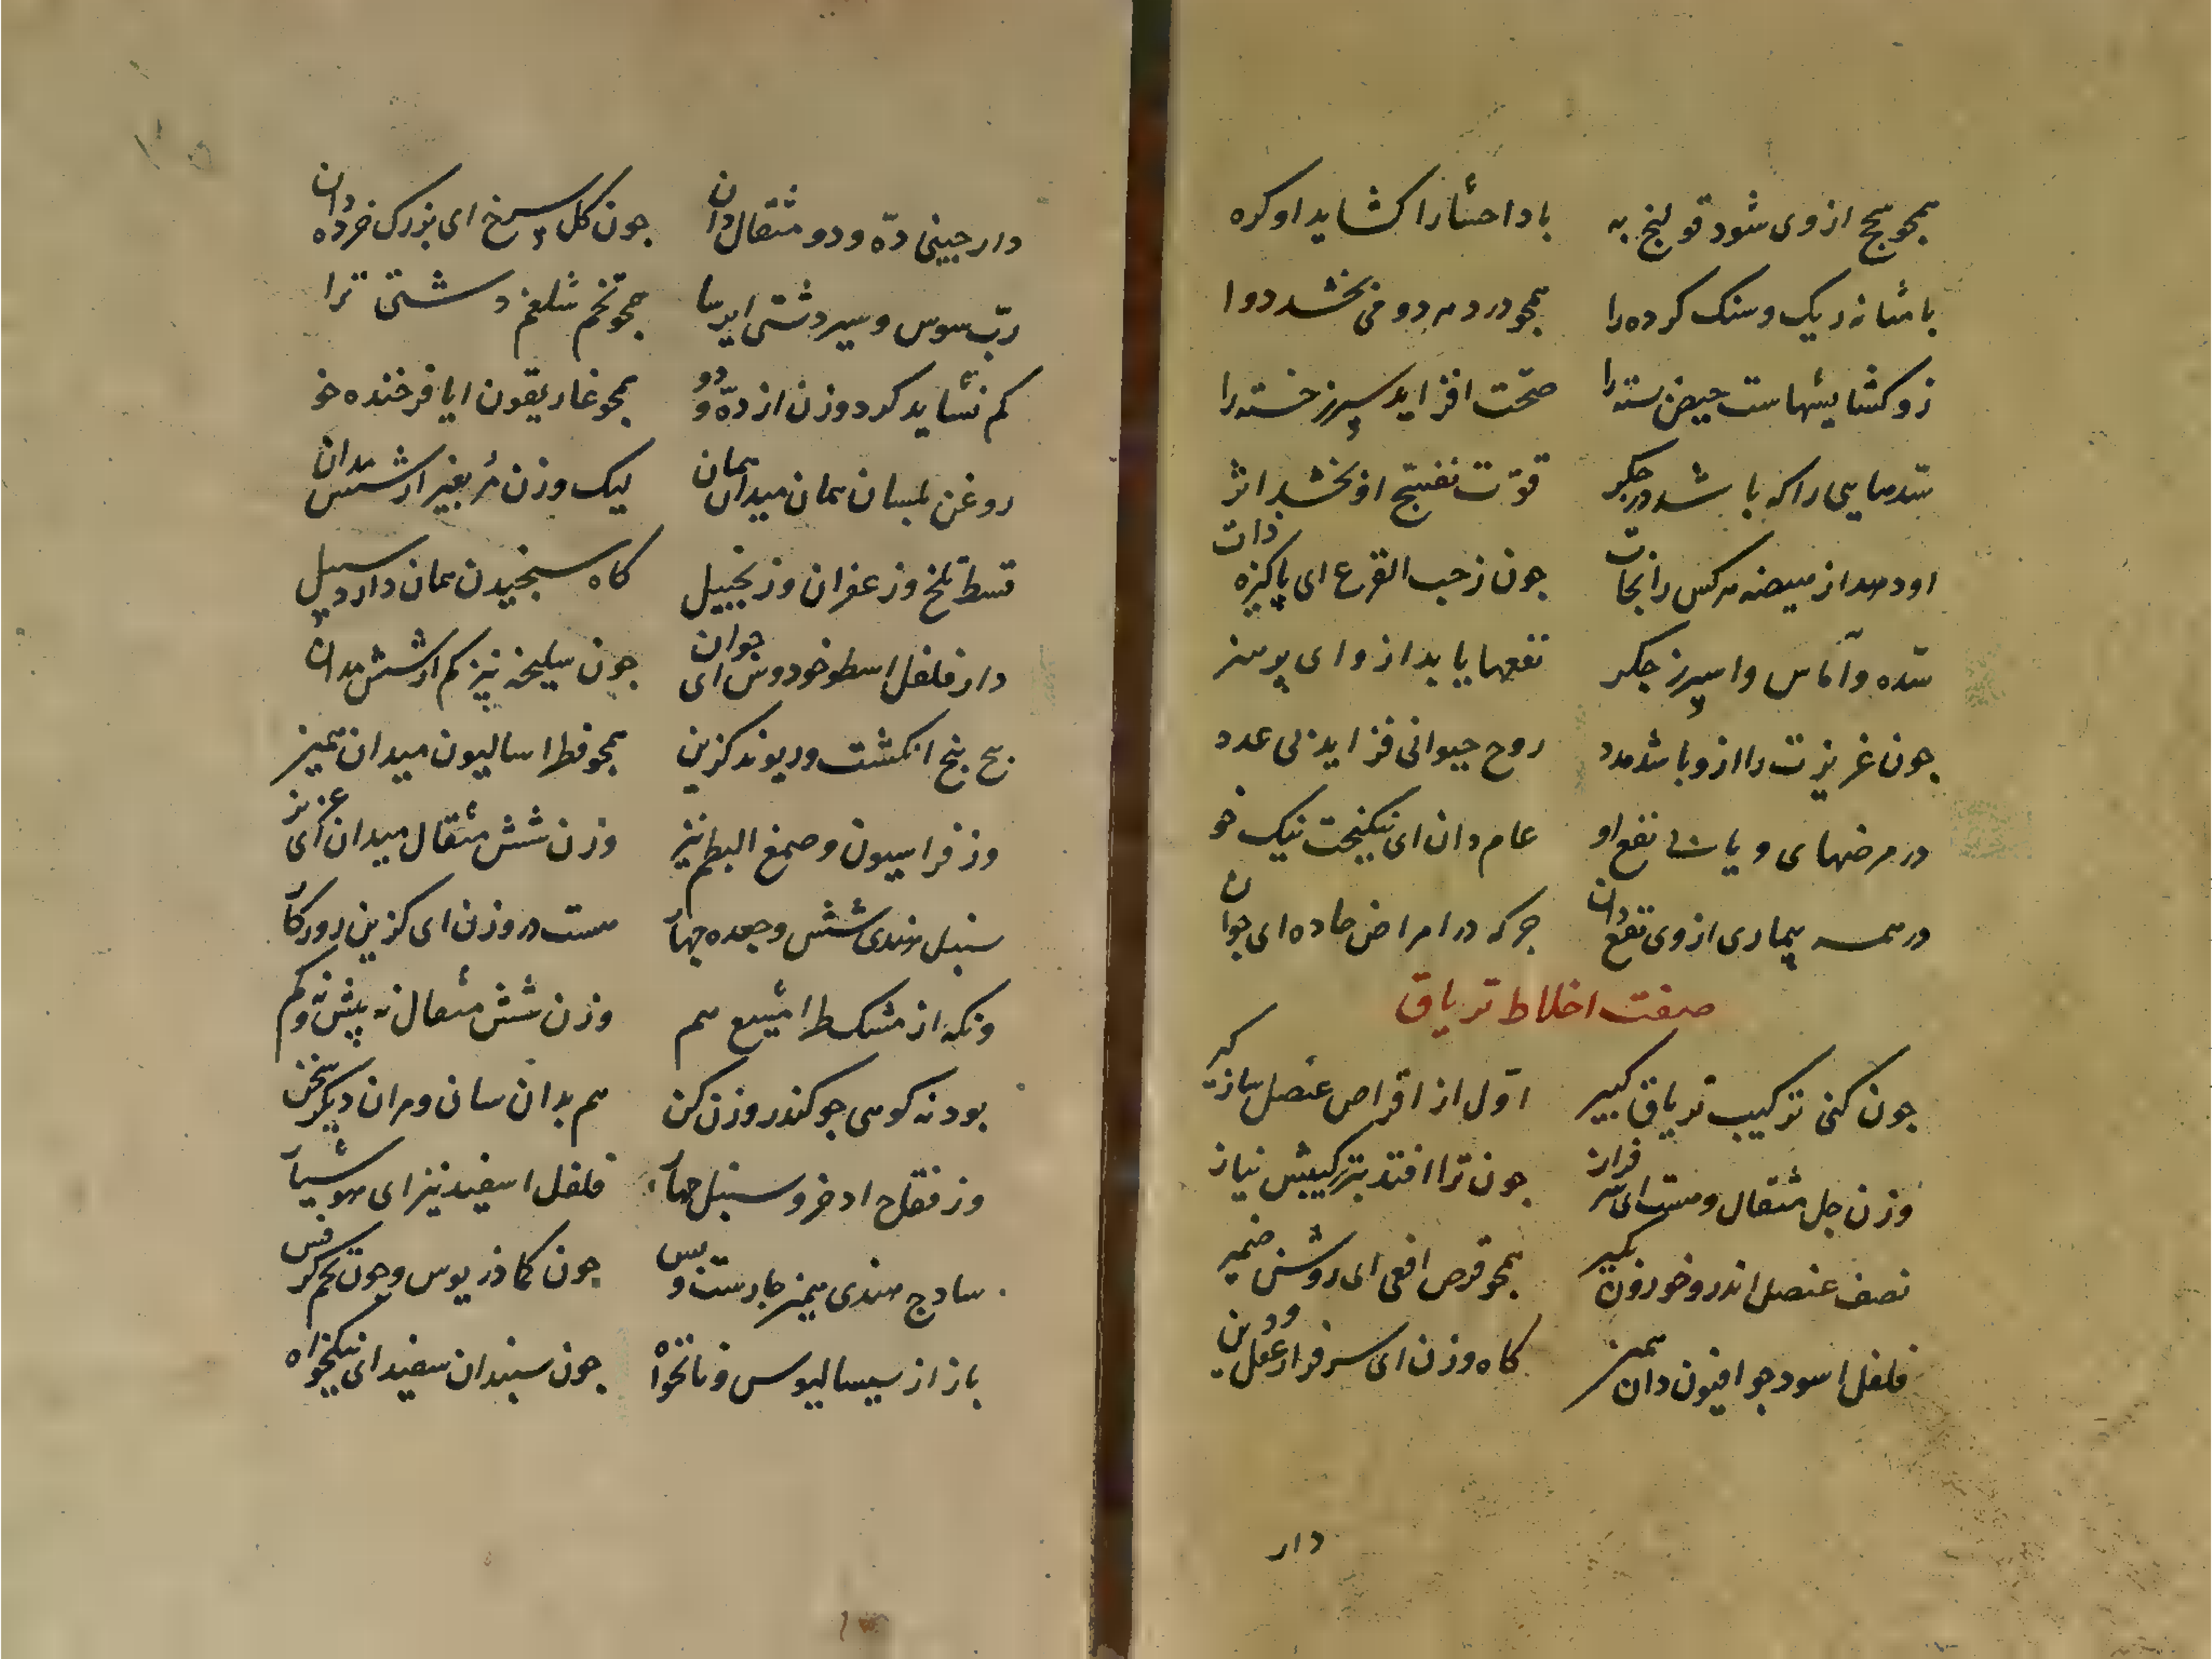 همجو هیج از وی شود قولنج به باد احشارا کشاید او کره
با مثانه ریک و سنک کرده را همجو درد هر دو می بخشد دوا
زو کشایشهاست حیض بسته را صحّت افزاید سپرز خسته را
سدّهایی را که باشد در جکر قوّت تفتیح او بخشد اثر
او دهد از هیضه هر کس را نجات جون ز حب القرع ای پاکیزه ذات
سدّه و آماس و اسپرز جکر نفعها یابد ازو ای پر هنر
جون غریزت را ازو باشد مدد روح حیوانی فزاید بی عدد
در مرضهای وبایی نفع او عام دان ای نیکبخت نیک خو
در همه بیماری از وی نفع دان جز که در امراض حاده ای جوان
صفت اخلاط تریاق
جون کنی ترکیب تریاق کبیر اوّل از اقراص عنصل ساز کیر
وزن جل مثقال و هست ای سر فراز جون ترا افتد بترکیبش نیاز
نصف عنصل اندر و خور وزن بکیر همجو قرص افعی ای روشن ضمیر
فلفل اسود جو افیون دان همین کاه وزن ای سرفراز عقل و دین
دار
دار جینی ده و دو مثقال دان جون کل سرخ ای بزرک خرده دان
ربّ سوس و سیر دشتی ایرسا همجو تخم شلغم دشتی ترا
کم نشاید کرد وزن از ده و دو همجو غاریقون ایا فرخنده خو
روغن بلسان همان میدان همان لیک وزن مرّ بغیر از شش مدان
قسط تلخ و زعفران و زنجبیل کاه سنجیدن همان دارد سبیل
دار فلفل اسطوخودوس ای جوان جون سلیخه نیز کم از شش مدان
بیخ بنج انکشت و ریوند کزین همجو فطراسالیون میدان همین
وز فراسیون و صمغ البطم نیز وزن شش مثقال میدان ای عزیز
سنبل هندی شش و جعده جهار هست در وزن ای کزین روزکار
ونکه از مشکطرامشیع هم وزن شش مثقال نه بیش و نه کم
بودنه کوهی جو کندر وزن کن هم بدان سان و مران دیکر سخن
وز فقاح اذخر و سنبل جهار فلفل اسفید نیز ای هوشیار
سادج هندی همین جارست و بس جون کماذریوس و جون تخم کرفس
باز از سیسالیوس و نانخواه جون سپندان سفید ای نیکخواه